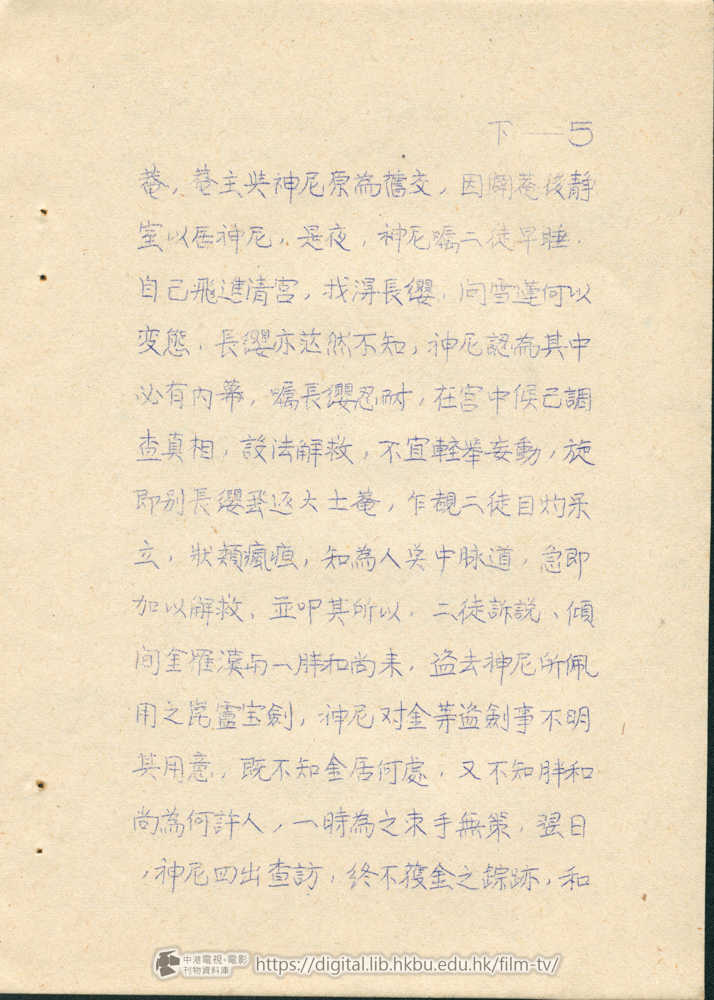 下—5
菴，菴主與神尼原為舊交，因闢菴後靜
室以居神尼，是夜，神尼囑二徒早睡，
自己飛進清宮，找淂長纓，问雪蓮何以
变態，長纓亦茫然不知，神尼認為其中
必有內幕，囑長纓忍耐，在宮中候己調
查真相，設法解救，不宜輕举妄動，旋
即别長纓飛返大士菴，乍覩二徒目灼呆
立，狀類瘋痘，知為人点中脉道，急即
加以解救、並叩其所以，二徒訴説、傾
间金羅漢与一胖和尚来，盗去神尼所佩
用之崑靈宝劍，神尼对金等盗劍事不明
其用意，既不知金居何處，又不知胖和
尚為何許人，一時為之束手無策，翌日
，神尼四出查訪，終不獲金之踪跡，和
中港電視·電影
刊物資料庫
https://digital.lib.hkbu.edu.hk/film-tv/